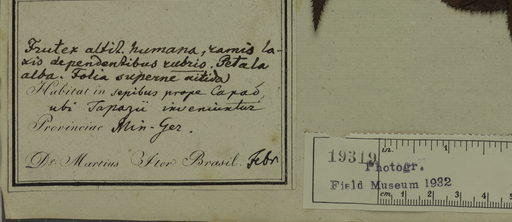 Frutex altit. humana, ramis la-
xis dependentibus rubris. Petala
alba. Folia superne nitida
Habitat in sepibus prope Capaõ,
ubi Topazii inveniuntur
Provinciae Min-Ger.
Dr Martius Iter Brasil. Febr
19319
Photogr.
Field Museum 1932
in. 1
cm. 1 2 3 4 5